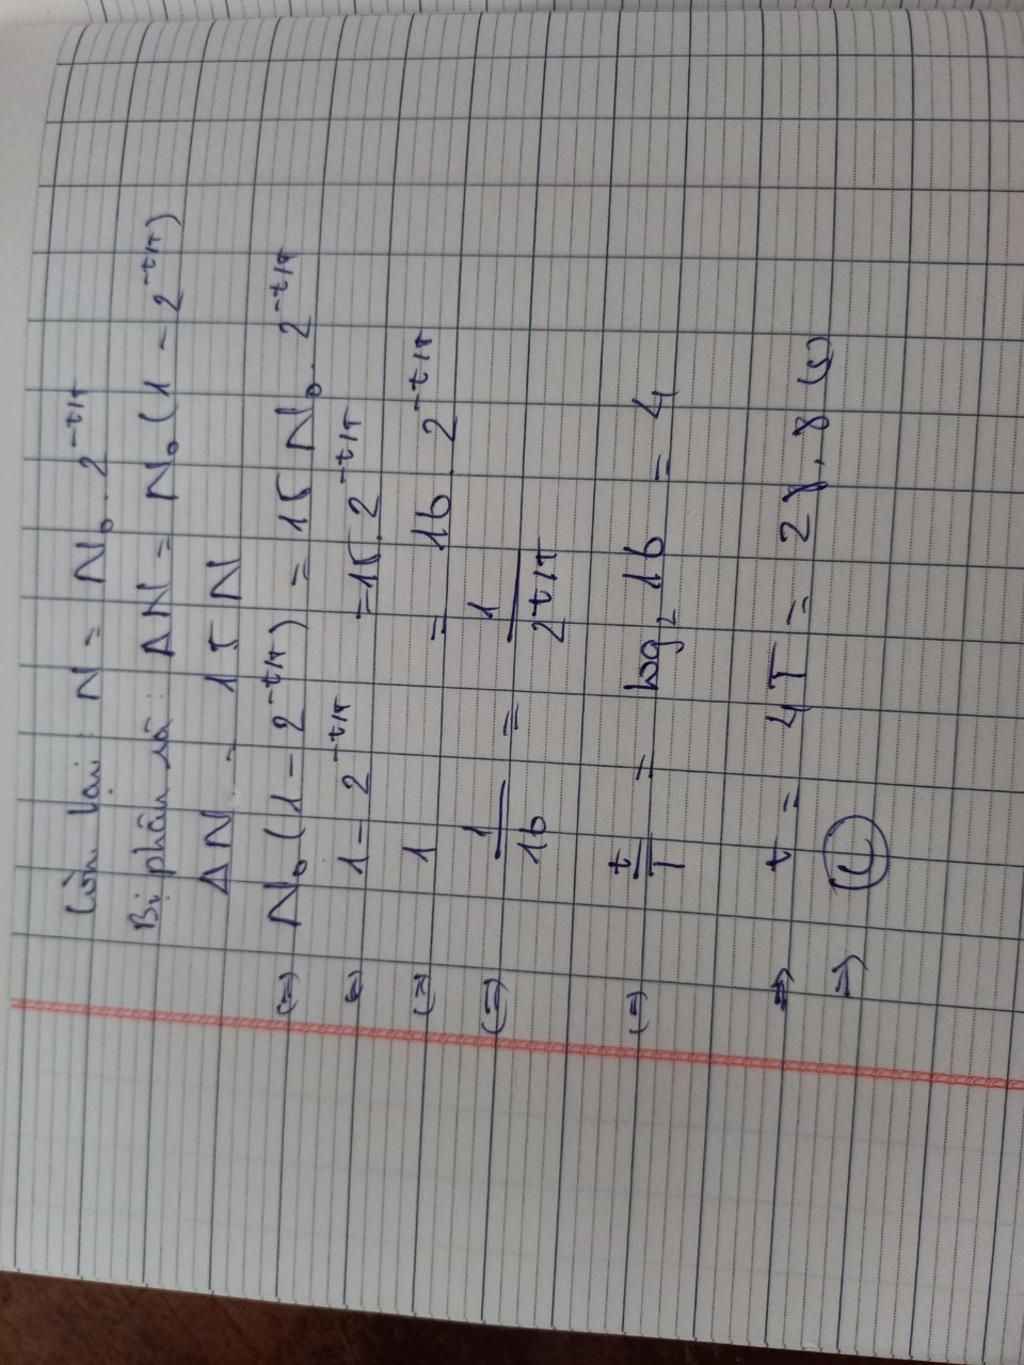 Còn lại : N = N₀ . 2^(-t/T)
Bị phân rã : ΔN = N₀ (1 - 2^(-t/T))
ΔN = 15 N
(=) N₀ (1 - 2^(-t/T)) = 15 N₀ . 2^(-t/T)
(=) 1 - 2^(-t/T) = 15 . 2^(-t/T)
(=) 1 = 16 . 2^(-t/T)
(=) 1/16 = 1/2^(t/T)
(=) t/T = log₂ 16 = 4
⇒ t = 4T = 28,8 (s)
⇒ (C)